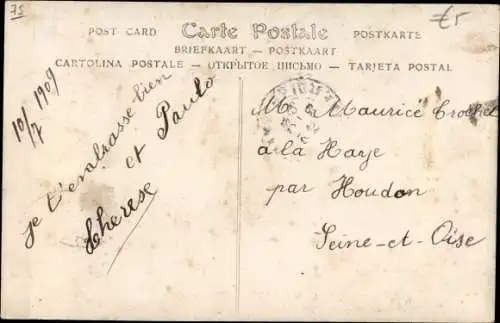 75
€5
POST CARD Carte Postale POSTKARTE
BRIEFKAART — POSTKAART
CARTOLINA POSTALE — ОТКРЫТОЕ ПИСЬМО — TARJETA POSTAL
10/7 1909
je t'embrasse bien
Therese et Paulo
Mr Maurice Crochet
à la Haye
par Houdon
Seine-et-Oise